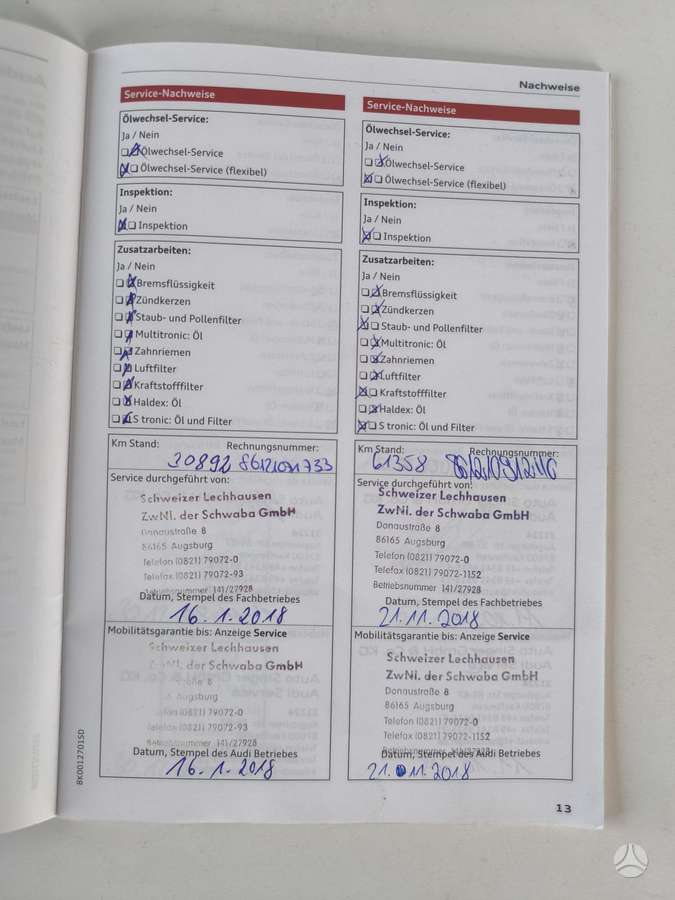 Nachweise
Service-Nachweise
Ölwechsel-Service:
Ja / Nein
Ölwechsel-Service
Ölwechsel-Service (flexibel)
Inspektion:
Ja / Nein
Inspektion
Zusatzarbeiten:
Ja / Nein
Bremsflüssigkeit
Zündkerzen
Staub- und Pollenfilter
Multitronic: Öl
Zahnriemen
Luftfilter
Kraftstofffilter
Haldex: Öl
S tronic: Öl und Filter
Km Stand:
Rechnungsnummer:
30892
Service durchgeführt von:
Schweizer Lechhausen
ZwNl. der Schwaba GmbH
Donaustraße 8
86165 Augsburg
Telefon (0821) 79072-0
Telefax (0821) 79072-93
Betriebsnummer 141/27928
Datum, Stempel des Fachbetriebes
16.1.2018
Mobilitätsgarantie bis: Anzeige Service
Schweizer Lechhausen
ZwNl. der Schwaba GmbH
8
Augsburg
(0821) 79072-0
(0821) 79072-93
141/27928
Datum, Stempel des Audi Betriebes
16.1.2018
Service-Nachweise
Ölwechsel-Service:
Ja / Nein
Ölwechsel-Service
Ölwechsel-Service (flexibel)
Inspektion:
Ja / Nein
Inspektion
Zusatzarbeiten:
Ja / Nein
Bremsflüssigkeit
Zündkerzen
Staub- und Pollenfilter
Multitronic: Öl
Zahnriemen
Luftfilter
Kraftstofffilter
Haldex: Öl
S tronic: Öl und Filter
Km Stand:
Rechnungsnummer:
61358
Service durchgeführt von:
Schweizer Lechhausen
ZwNl. der Schwaba GmbH
Donaustraße 8
86165 Augsburg
Telefon (0821) 79072-0
Telefax (0821) 79072-1152
Betriebsnummer 141/27928
Datum, Stempel des Fachbetriebes
21.11.2018
Mobilitätsgarantie bis: Anzeige Service
Schweizer Lechhausen
ZwNl. der Schwaba GmbH
Donaustraße 8
86165 Augsburg
Telefon (0821) 79072-0
Telefax (0821) 79072-1152
Betriebsnummer 141/27928
Datum, Stempel des Audi Betriebes
21.11.2018
8K0012701SD
13